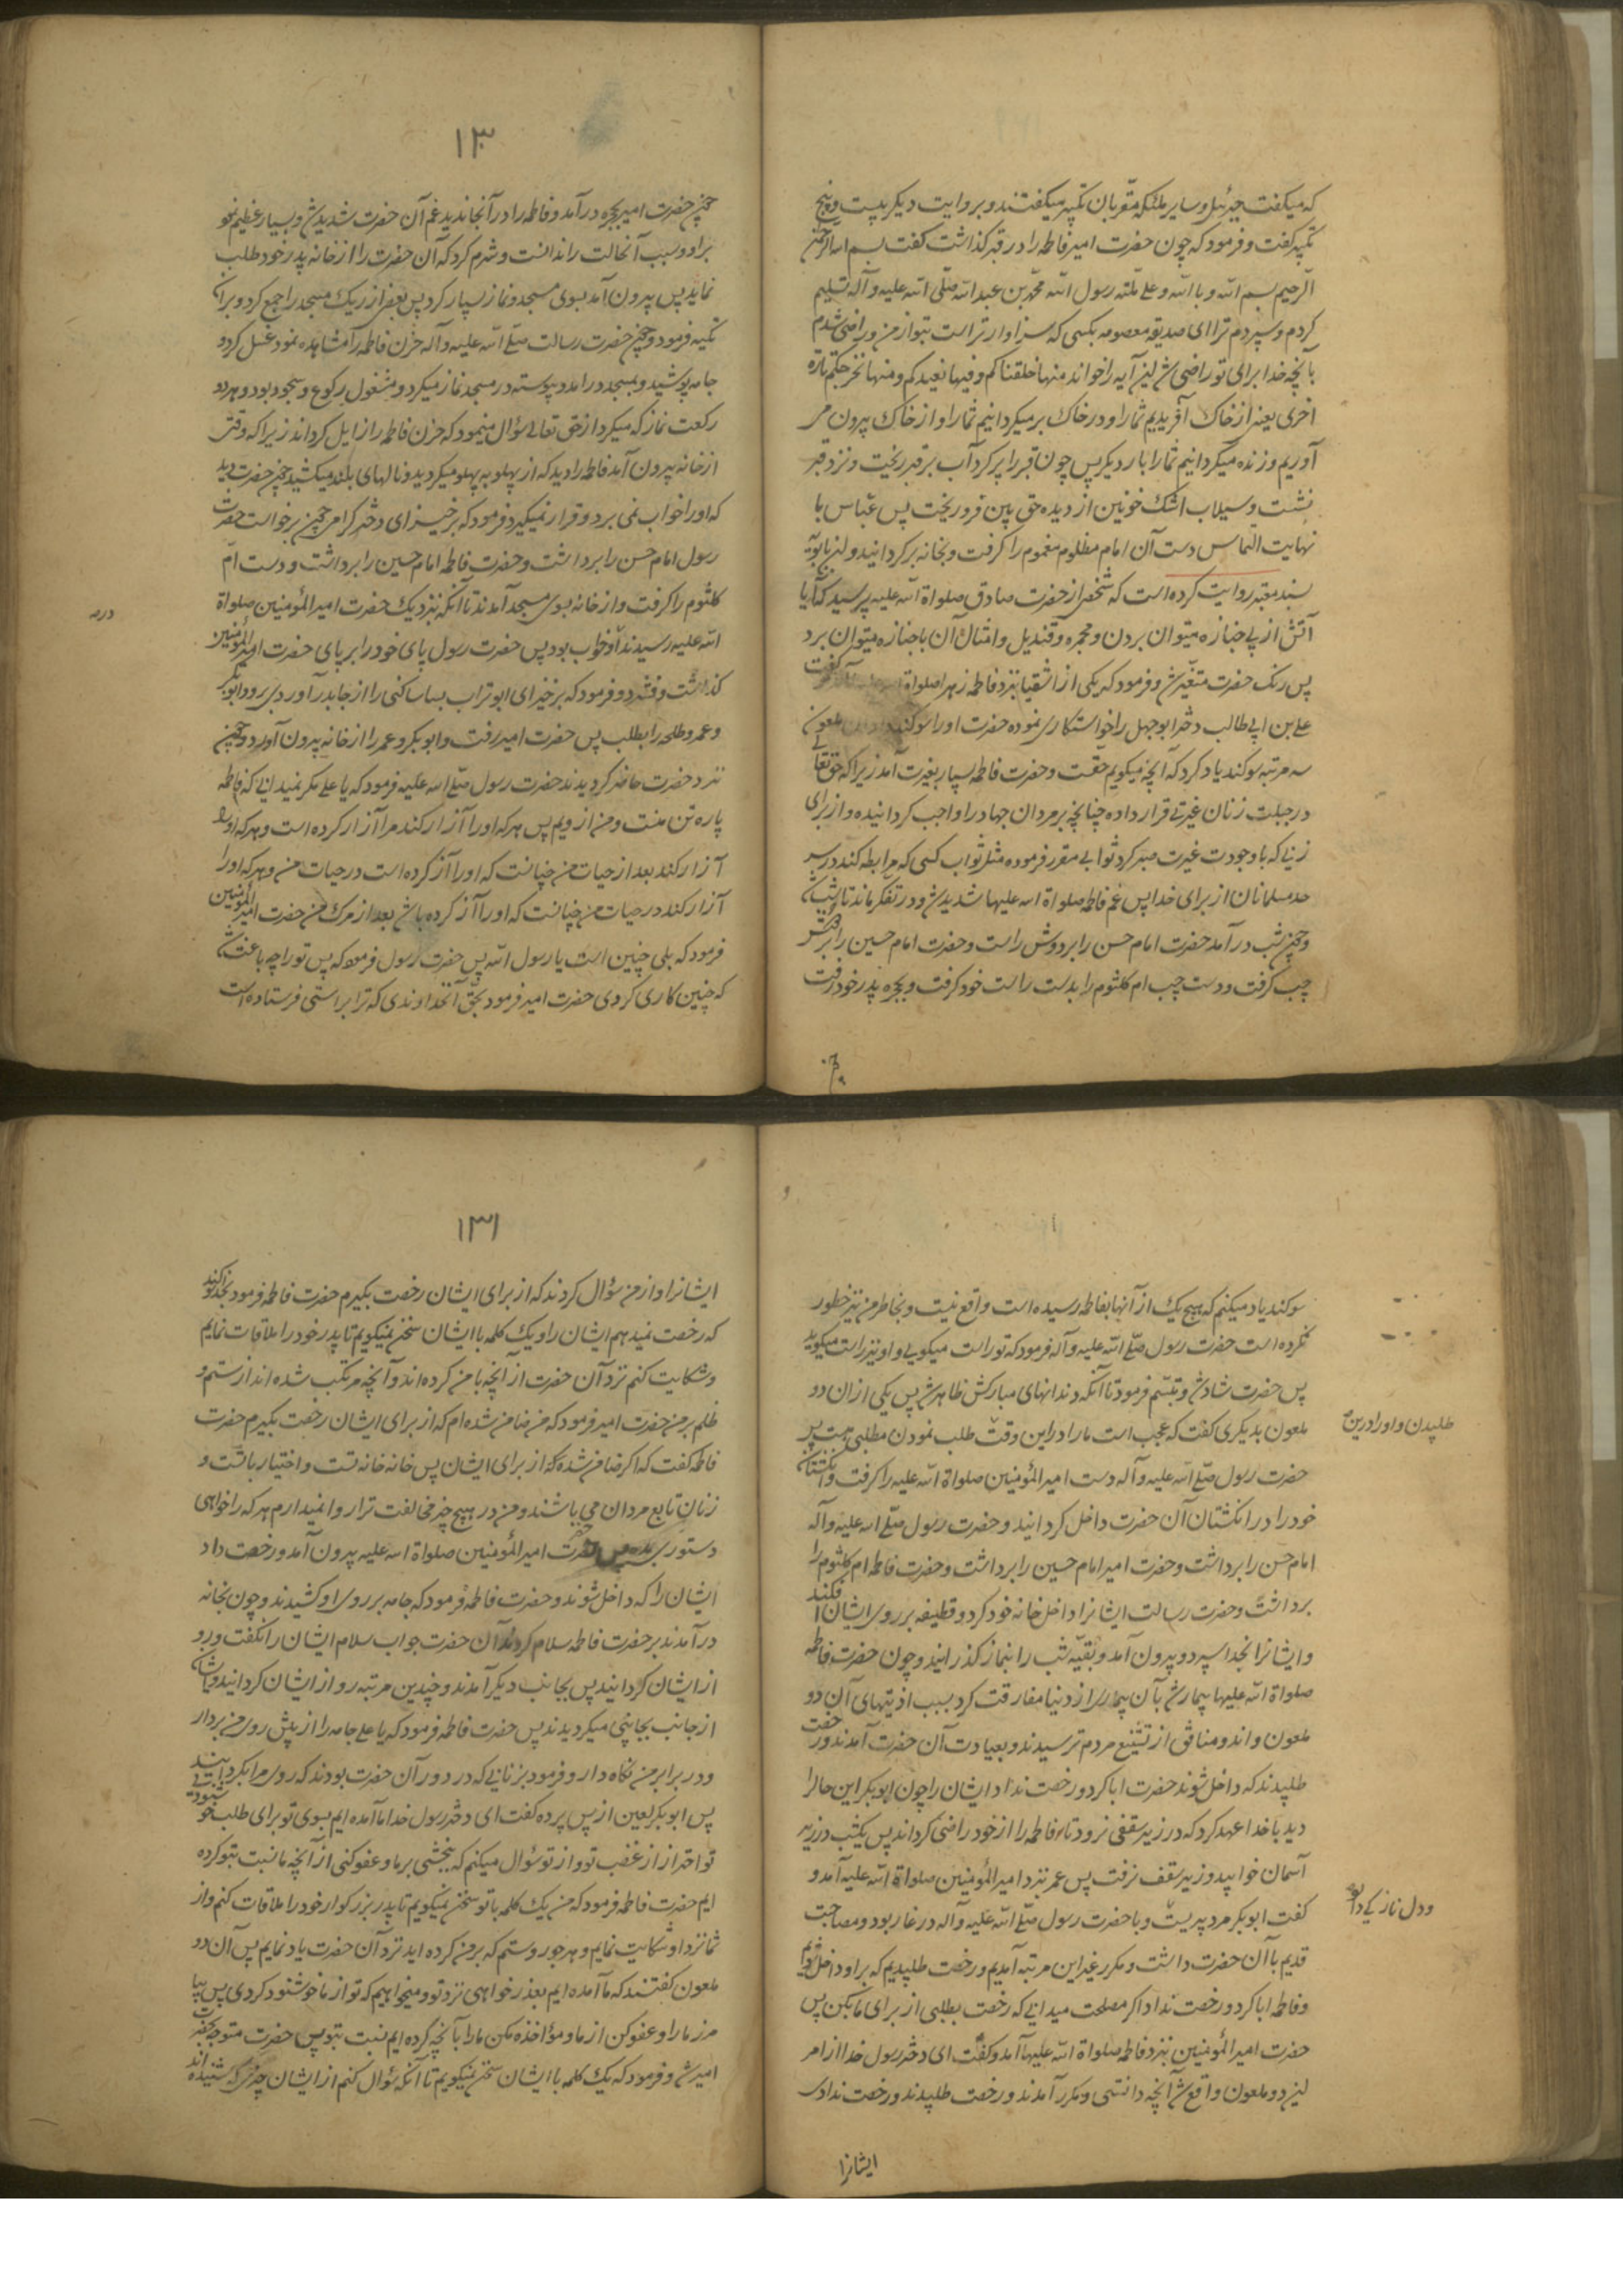 که میگفت جبرئیل و سایر ملئکه مقربان تکبیر میگفتند و بروایت دیگر بیست و پنج
تکبیر گفت و فرمود که چون حضرت امیر فاطمه را در قبر گذاشت گفت بسم الله الرحمن
الرحیم بسم الله و بالله و علی ملة رسول الله محمد بن عبد الله صلی الله علیه و آله تسلیم
کردم و سپردم ترا ای صدیقه معصومه بکسی که سزاوارتر است بتو از من و راضی شدم
بآنچه خدا برای تو راضی شد پس این آیه را خواند منها خلقناکم و فیها نعیدکم و منها نخرجکم تارة
اخری یعنی از خاک آفریدیم شما را و در خاک بر میگردانیم شما را و از خاک بیرون می
آوریم و زنده میگردانیم شما را بار دیگر پس چون قبر را پر کرد آب بر قبر ریخت و نزد قبر
نشست و سیلاب اشک خونین از دیده حق بین فرو ریخت پس عباس با
نهایت التماس دست آن امام مظلوم مغموم را گرفت و بخانه برگردانید و ابن بابویه
بسند معتبر روایت کرده است که شخصی از حضرت صادق صلواة الله علیه پرسید که آیا
آتش از پی جنازه میتوان بردن و مجمره و قندیل و امثال آن با جنازه میتوان برد
پس رنگ حضرت متغیر شد و فرمود که یکی از اشقیا نزد فاطمه زهرا صلواة الله علیها آمد گفت
علی بن ابی طالب دختر ابوجهل را خواستگاری نموده حضرت او را سوگند داد آن ملعون
سه مرتبه سوگند یاد کرد که آنچه میگویم حقست و حضرت فاطمه بسیار بغیرت آمد زیرا که حق تعالی
در جبلت زنان غیرتی قرار داده چنانچه بر مردان جهاد را واجب گردانیده و از برای
زنی که باوجودت غیرت صبر کرد ثوابی مقرر فرموده مثل ثواب کسی که مرابطه کند در سر
حد مسلمانان از برای خدا پس غم فاطمه صلواة الله علیها شدید شد و در تفکر ماند تا شب شد
و چون شب در آمد حضرت امام حسن را بر دوش راست و حضرت امام حسین را بر دوش
چپ گرفت و دست چپ ام کلثوم را بدست راست خود گرفت و بحجره پدر خود رفت
۱۳۰
چون حضرت امیر بحجره در آمد و فاطمه را در آنجا ندید غم آن حضرت شدید شد و بسیار عظیم نمود
بر او و سبب آنحالت را ندانست و شرم کرد که آن حضرت را از خانه پدر خود طلب
نماید پس بیرون آمد بسوی مسجد و نماز بسیار کرد پس بعضی از ریک مسجد را جمع کرد و بر آن
تکیه فرمود و چون حضرت رسالت صلی الله علیه و آله حزن فاطمه را مشاهده نمود غسل کرد و
جامه پوشید و بمسجد درآمد و پیوسته در مسجد نماز میکرد و مشغول رکوع و سجود بود و هر دو
رکعت نماز که میکرد از حق تعالی سؤال مینمود که حزن فاطمه را زایل گرداند زیرا که وقتی
از خانه بیرون آمد فاطمه را دید که از پهلو به پهلو میگردید و نالهای بلند میکشید چون حضرت دید
که او را خواب نمی برد و قرار نمیگیرد فرمود که برخیز ای دختر گرامی چون برخواست حضرت
رسول امام حسن را برداشت و حضرت فاطمه امام حسین را برداشت و دست ام
کلثوم را گرفت و از خانه بسوی مسجد آمدند تا آنکه نزدیک حضرت امیر المؤمنین صلواة
الله علیه رسیدند او خواب بود پس حضرت رسول پای خود را بر پای حضرت امیر المؤمنین
گذاشت و فشرد و فرمود که برخیز ای ابوتراب بسا ساکنی را از جا بدر آوردی برو ابوبکر
و عمر و طلحه را بطلب پس حضرت امیر رفت و ابوبکر و عمر را از خانه بیرون آورد و چون
نزد حضرت حاضر گردیدند حضرت رسول صلی الله علیه فرمود که یا علی مگر نمیدانی که فاطمه
پاره تن منست و من از ویم پس هر که او را آزار کند مرا آزار کرده است و هر که او را
آزار کند بعد از حیات من چنانست که او را آزار کرده است در حیات من و هر که او را
آزار کند در حیات من چنانست که او را آزار کرده باشد بعد از مرگ من حضرت امیر المؤمنین
فرمود که بلی چنین است یا رسول الله پس حضرت رسول فرمود که پس تو را چه باعث شد
که چنین کاری کردی حضرت امیر فرمود بحق آنخداوندی که ترا براستی فرستاده است
سوگند یاد میکنم که هیچ یک از آنها بفاطمه رسیده است واقع نیست و بخاطر من نیز خطور
نکرده است حضرت رسول صلی الله علیه و آله فرمود که تو راست میگویی و او نیز راست میگوید
پس حضرت شاد شد و تبسم فرمود تا آنکه دندانهای مبارکش ظاهر شد پس یکی از ان دو
ملعون بدیگری گفت که عجب است ما را در این وقت طلب نمودن مطلبی هست پس
طلپیدن و او را در این
حضرت رسول صلی الله علیه و آله دست امیر المؤمنین صلواة الله علیه را گرفت و انگشتان
خود را در انگشتان آن حضرت داخل گردانید و حضرت رسول صلی الله علیه و آله
امام حسن را برداشت و حضرت امیر امام حسین را برداشت و حضرت فاطمه ام کلثوم را
برداشت و حضرت رسالت ایشانرا داخل خانه خود کرد و قطیفه بر روی ایشان افکند
و ایشانرا بخدا سپرد و بیرون آمد و بقیه شب را بنماز گذرانید و چون حضرت فاطمه
صلواة الله علیها بیمار شد بآن بیماری از دنیا مفارقت کرد بسبب اذیتهای آن دو
ملعون و اند و منافق از تشنیع مردم ترسیدند و بعیادت آن حضرت آمدند و رخصت
طلپیدند که داخل شوند حضرت ابا کرد و رخصت نداد ایشان را چون ابوبکر این حالرا
دید با خدا عهد کرد که در زیر سقفی نرود تا فاطمه را از خود راضی گرداند پس یکشب در زیر
آسمان خوابید و زیر سقف نرفت پس عمر نزد امیر المؤمنین صلواة الله علیه آمد و
گفت ابوبکر مرد پیریست و با حضرت رسول صلی الله علیه و آله در غار بود و مصاحبت
و دل نازکی دارد
قدیم با آن حضرت داشت و مکرر غیر این مرتبه آمدیم و رخصت طلپیدیم که بر او داخل شویم
و فاطمه ابا کرد و رخصت نداد اگر مصلحت میدانی که رخصت بطلبی از برای ما بکن پس
حضرت امیر المؤمنین نزد فاطمه صلواة الله علیها آمد و گفت ای دختر رسول خدا از امر
این دو ملعون واقع شد آنچه دانستی و مکرر آمدند و رخصت طلپیدند و رخصت ندادی
ایشانرا
۱۳۱
ایشانرا و از من سؤال کردند که از برای ایشان رخصت بگیرم حضرت فاطمه فرمود بخدا سوگند
که رخصت نمیدهم ایشان را و یک کلمه با ایشان سخن نمیگویم تا پدر خود را ملاقات نمایم
و شکایت کنم نزد آن حضرت از آنچه با من کرده اند و آنچه مرتکب شده اند از ستم و
ظلم بر من حضرت امیر فرمود که من ضامن شده ام که از برای ایشان رخصت بگیرم حضرت
فاطمه گفت که اگر ضامن شده که از برای ایشان پس خانه خانه تست و اختیار با تست و
زنان تابع مردان می باشند و من در هیچ چیز مخالفت ترا روا نمیدارم هر که را خواهی
دستوری بده پس حضرت امیر المؤمنین صلواة الله علیه بیرون آمد و رخصت داد
ایشان را که داخل شوند و حضرت فاطمه فرمود که جامه بر روی او کشیدند و چون بخانه
در آمدند بر حضرت فاطمه سلام کردند آن حضرت جواب سلام ایشان را نگفت و رو
از ایشان گردانید پس بجانب دیگر آمدند و چندین مرتبه رو از ایشان گردانید و ایشان
از جانب بجانبی میگردیدند پس حضرت فاطمه فرمود که یا علی جامه را از پیش روی من بردار
و در برابر من نگاه دار و فرمود بزنانی که در دور آن حضرت بودند که روی مرا بگردانید
پس ابوبکر لعین از پس پرده گفت ای دختر رسول خدا ما آمده ایم بسوی تو برای طلب خوشنودی
تو احتراز از غضب تو و از تو سؤال میکنم که ببخشی بر ما و عفو کنی از آنچه ما نسبت بتو کرده
ایم حضرت فاطمه فرمود که من یک کلمه با تو سخن نمیگویم تا پدر بزرگوار خود را ملاقات کنم و از
شما نزد او شکایت نمایم و هر جور و ستم که بر من کرده اید نزد آن حضرت یاد نمایم پس آن دو
ملعون گفتند که ما آمده ایم بعذر خواهی نزد تو و میخواهیم که تو از ما خوشنود گردی پس بیا
مرز ما را و عفو کن از ما و مؤاخذه مکن ما را بآنچه کرده ایم نسبت بتو پس حضرت متوجه حضرت
امیر شد و فرمود که یک کلمه با ایشان سخن نمیگویم تا آنکه سؤال کنم از ایشان چیزی که شنیده اند